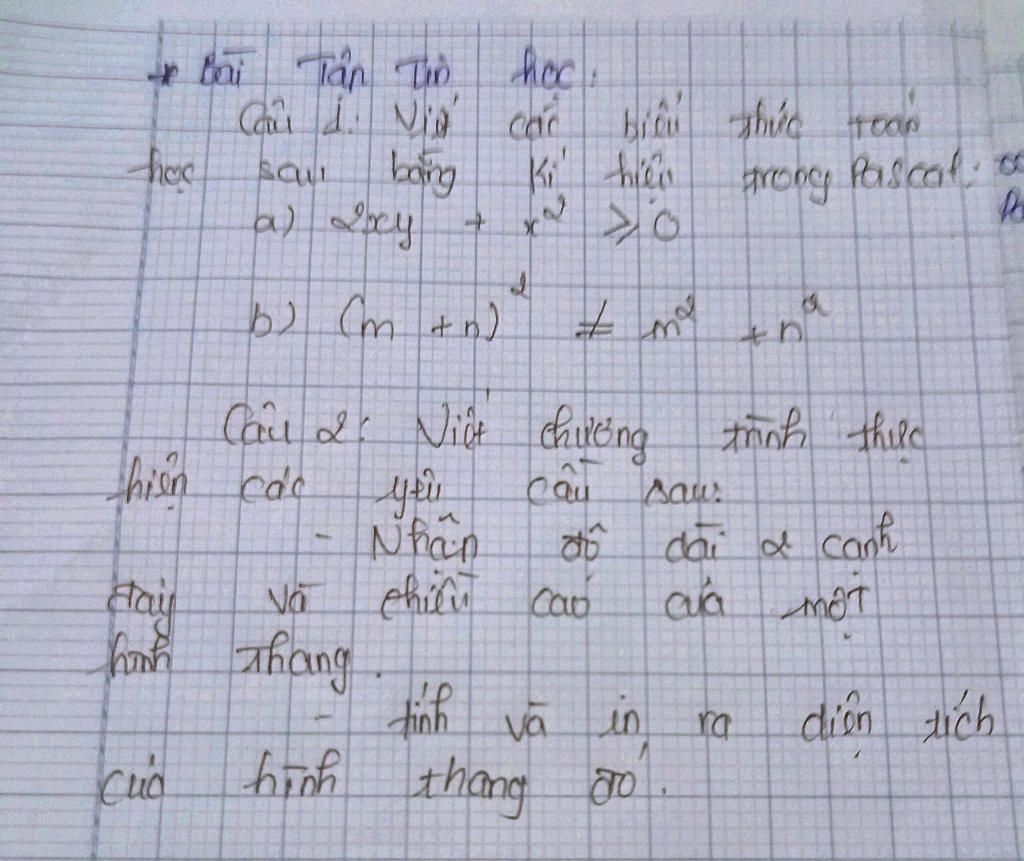 * Bài Tập Tin học:
Câu 1: Viết các biểu thức toán
học sau bằng kí hiệu trong Pascal:
a) 2xy + x² ⩾ 0
b) (m + n)² ≠ m² + n²
Câu 2: Viết chương trình thực
hiện các yêu cầu sau:
- Nhận độ dài 2 cạnh
đáy và chiều cao của một
hình thang.
- tính và in ra diện tích
của hình thang đó.